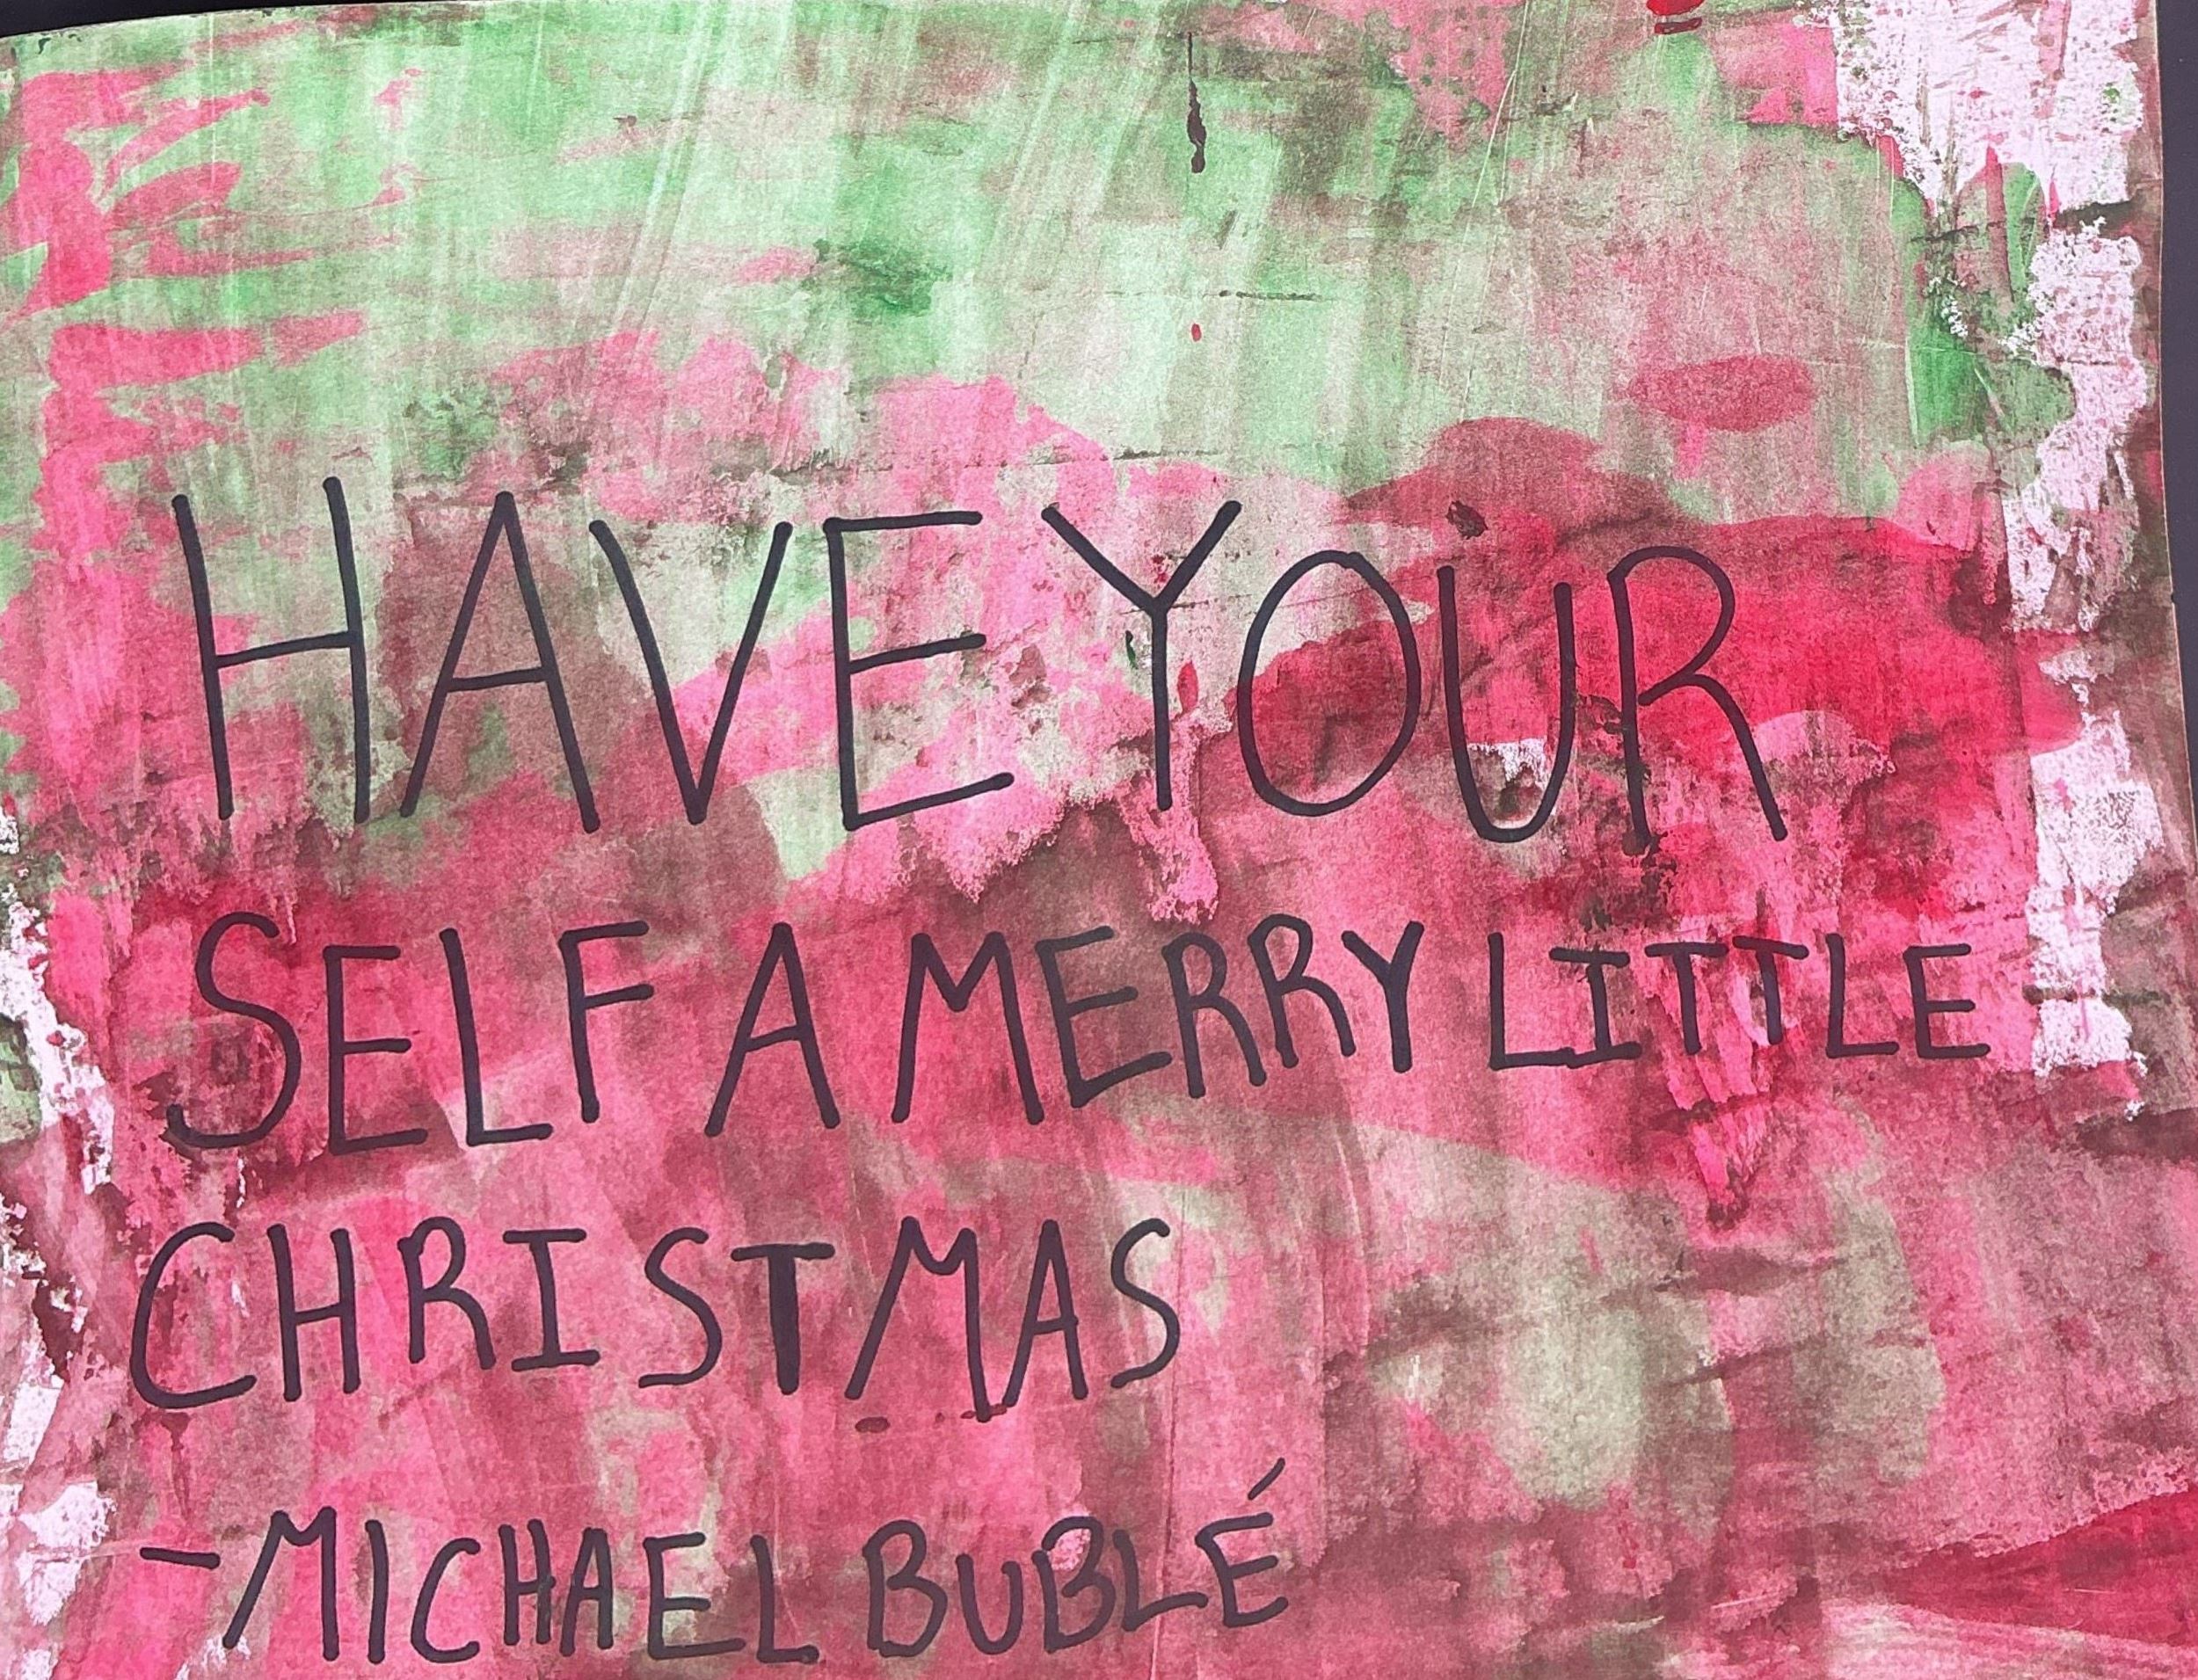 HAVE YOUR
SELF A MERRY LITTLE
CHRISTMAS
-MICHAEL BUBLÉ